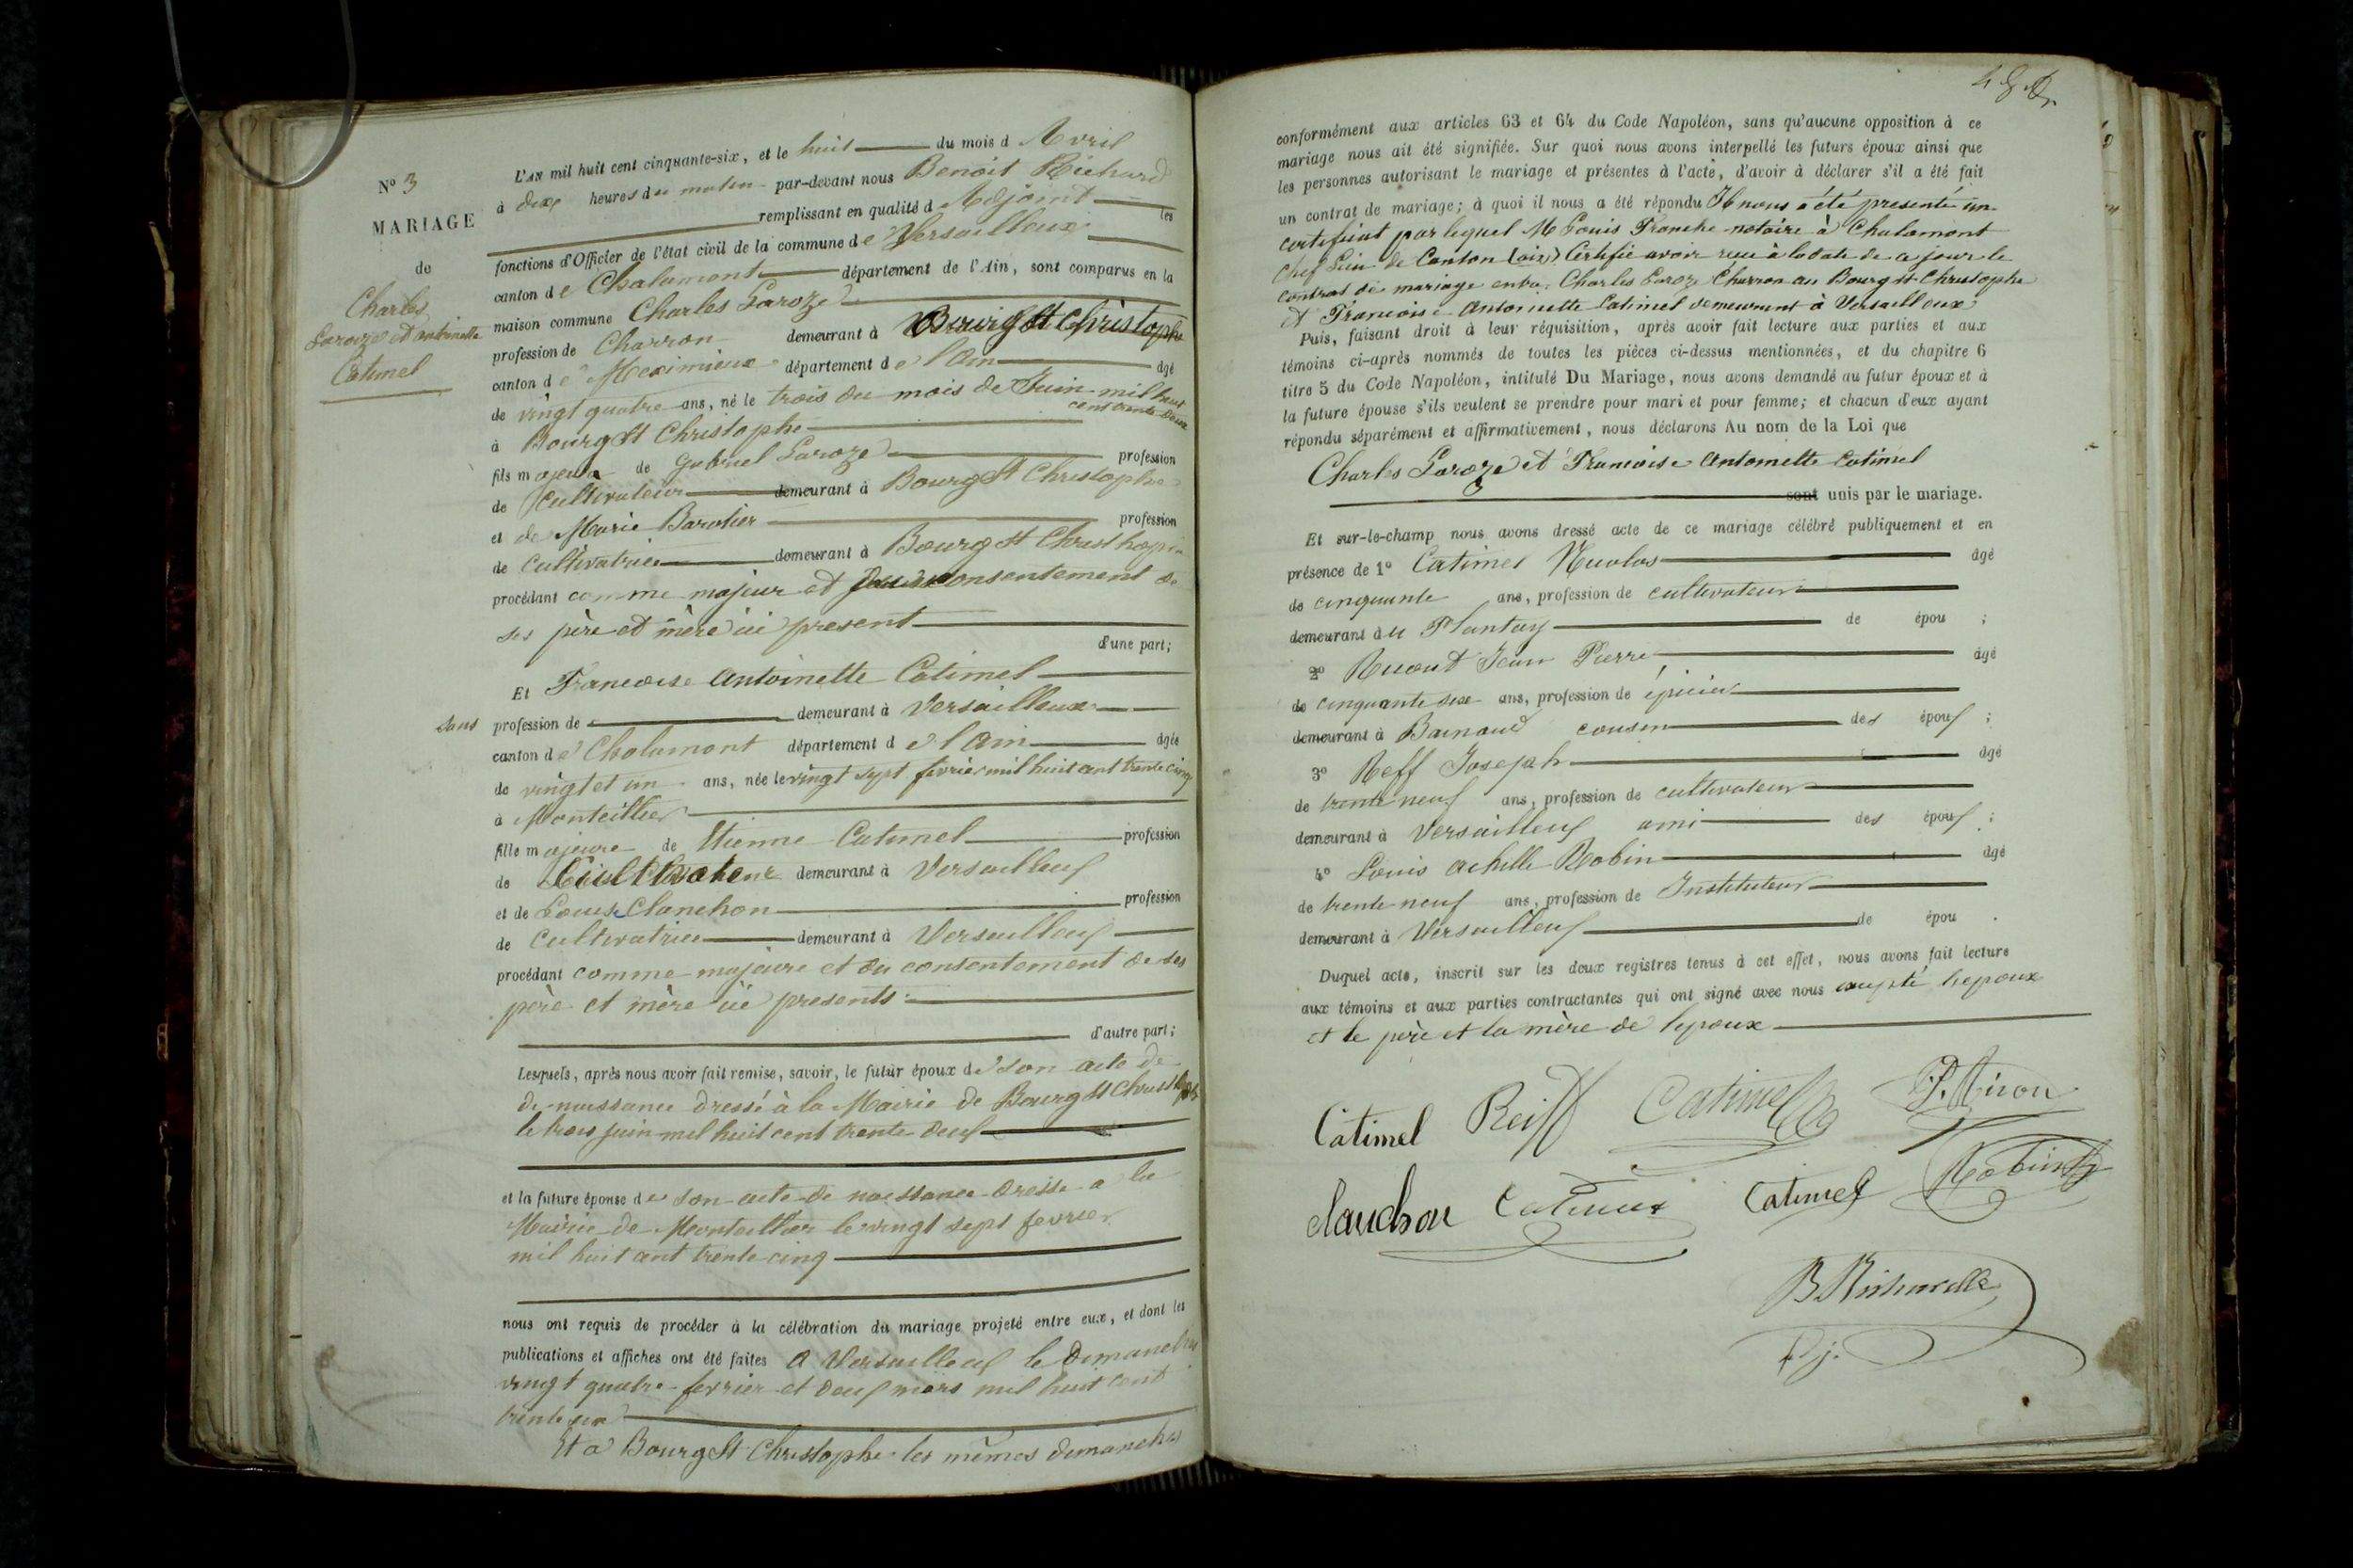 N° 3
MARIAGE
de
Charles
Laroze et antoinette
Catimel
L'AN mil huit cent cinquante-six, et le huit du mois d Avril
à dix heures du matin par-devant nous Benoit Richard
remplissant en qualité d Adjoint les
fonctions d'Officier de l'état civil de la commune de Versailleux
canton de Chalamont département de l'Ain, sont comparus en la
maison commune Charles Laroze
profession de Charron demeurant à Bourg St Christophe
canton de Meximieux département de l'Ain âgé
de vingt quatre ans, né le trois du mois de Juin mil huit
cent trente deux
à Bourg St Christophe
fils majeur de Gabriel Laroze profession
de Cultivateur demeurant à Bourg St Christophe
et de Marie profession
de Cultivatrice demeurant à Bourg St
procédant comme majeur et du consentement de
ses père et mère ici present
d'une part;
Et Francoise Antoinette Catimel
sans profession de demeurant à Versailleux
canton de Chalamont département de l'Ain âgée
de vingt et un ans, née le vingt sept fevrier mil huit cent trente cinq
à Montellier
fille majeure de Etienne Catimel profession
de Cultivateur demeurant à Versailleux
et de Louise Clanchon profession
de Cultivatrice demeurant à Versailleux
procédant comme majeure et du consentement de ses
père et mère ici presents
d'autre part;
Lesquels, après nous avoir fait remise, savoir, le futur époux de son acte de
de naissance dressé à la Mairie de Bourg St Christophe
le trois juin mil huit cent trente deux
et la future épouse de son acte de naissance dressé a la
Mairie de Montellier le vingt sept fevrier
mil huit cent trente cinq
nous ont requis de procéder à la célébration du mariage projeté entre eux, et dont les
publications et affiches ont été faites A Versailleux le Dimanche
vingt quatre fevrier et deux mars mil huit cent
trente six
Et a Bourg St Christophe les mêmes dimanches
conformément aux articles 63 et 64 du Code Napoléon, sans qu'aucune opposition à ce
mariage nous ait été signifiée. Sur quoi nous avons interpellé les futurs époux ainsi que
les personnes autorisant le mariage et présentes à l'acte, d'avoir à déclarer s'il a été fait
un contrat de mariage; à quoi il nous a été répondu Il nous a été presenté un
certificat par lequel Me Louis Franche notaire à Chalamont
chef Lieu de Canton (ain) Certifie avoir recu à la date de ce jour le
contrat de mariage entre Charles Laroze Charron au Bourg St Christophe
et Francoise Antoinette Catimel demeurant à Versailleux
Puis, faisant droit à leur réquisition, après avoir fait lecture aux parties et aux
témoins ci-après nommés de toutes les pièces ci-dessus mentionnées, et du chapitre 6
titre 5 du Code Napoléon, intitulé Du Mariage, nous avons demandé au futur époux et à
la future épouse s'ils veulent se prendre pour mari et pour femme; et chacun d'eux ayant
répondu séparément et affirmativement, nous déclarons Au nom de la Loi que
Charles Laroze et Francoise Antoinette Catimel
sont unis par le mariage.
Et sur-le-champ nous avons dressé acte de ce mariage célébré publiquement et en
présence de 1° Catimel Nicolas âgé
de cinquante ans, profession de cultivateur
demeurant à u Plantay de épou ;
2° Jean Pierre âgé
de cinquante six ans, profession de épicier
demeurant à cousin des époux ;
3° Reff Joseph âgé
de trente neuf ans, profession de cultivateur
demeurant à Versailleux ami des époux ;
4° Louis Achille Robin âgé
de trente neuf ans, profession de Instituteur
demeurant à Versailleux de épou .
Duquel acte, inscrit sur les deux registres tenus à cet effet, nous avons fait lecture
aux témoins et aux parties contractantes qui ont signé avec nous excepté l'epoux
et le père et la mère de l'epoux
Catimel Reiff Catimel
clanchon Catimel Catimel Robin
adj.